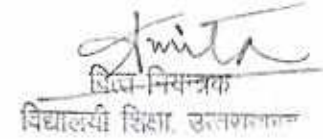 Smita
वित्त नियन्त्रक
विद्यालयी शिक्षा, उत्तराखण्ड